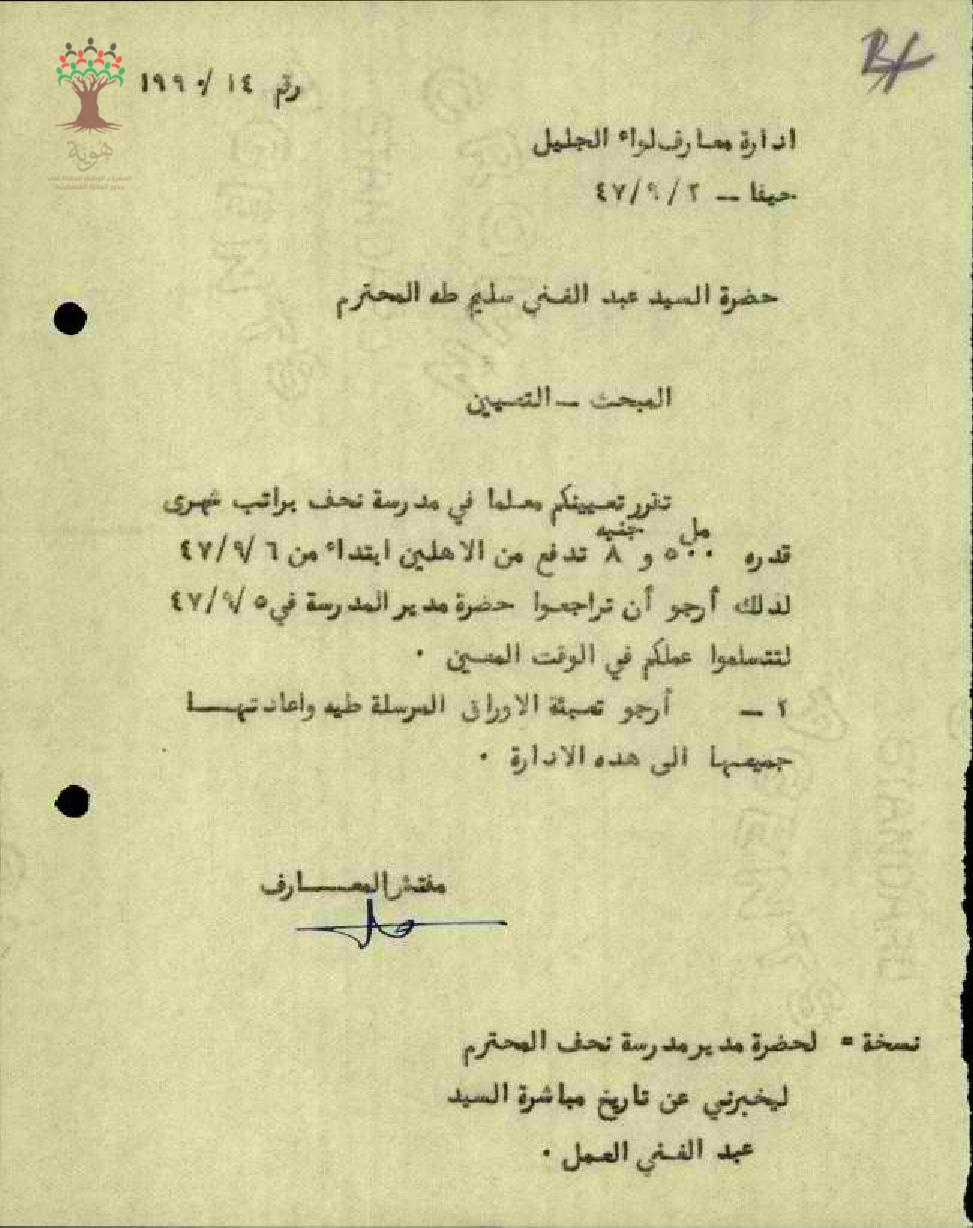 رقم ١٤/١٩٩٠
ادارة معارف لواء الجليل
حيفا — ٤٧/٩/٢
حضرة السيد عبد الغني سليم طه المحترم
المبحث — التعيين
تقرر تعيينكم معلما في مدرسة نحف براتب شهرى
مل جنيه
قدره ٥٠٠ و ٨ تدفع من الاهلين ابتداء من ٤٧/٩/٦
لذلك أرجو أن تراجعوا حضرة مدير المدرسة في ٤٧/٩/٥
لتتسلموا عملكم في الوقت المعين ٠
٢ — أرجو تعبئة الاوراق المرسلة طيه واعادتهــا
جميعها الى هذه الادارة ٠
مفتش المعـــارف
نسخة = لحضرة مدير مدرسة نحف المحترم
ليخبرني عن تاريخ مباشرة السيد
عبد الغني العمل ٠
هوية